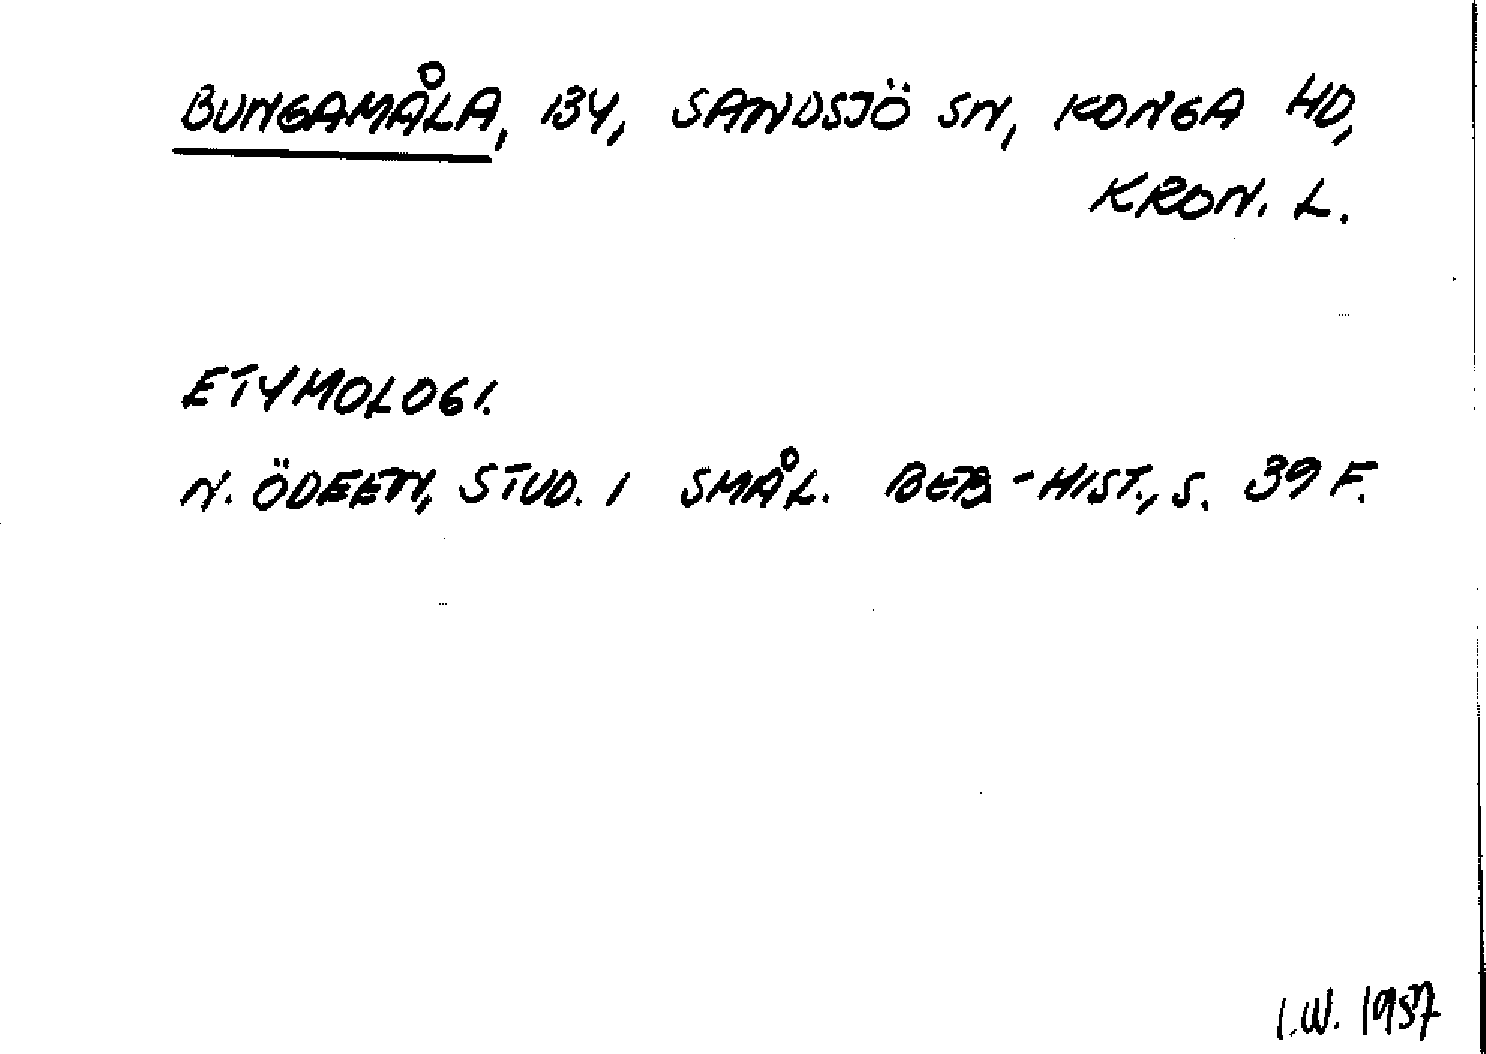 BUNGAMÅLA, BY, SANDSJÖ SN, KONGA HD,
KRON. L.
ETYMOLOGI.
N. ÖDEEN, STUD. I SMÅL. BEB-HIST., S. 39 F.
I.W. 1957